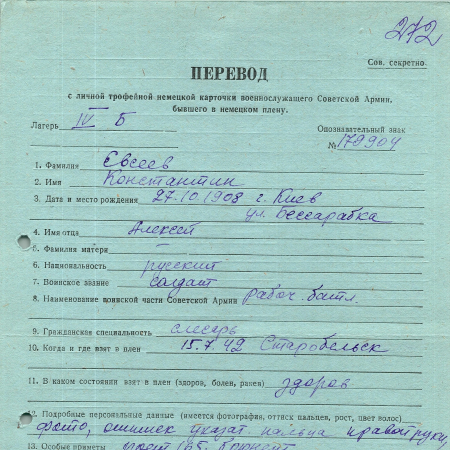 272
Сов. секретно.
ПЕРЕВОД
с личной трофейной немецкой карточки военнослужащего Советской Армии,
бывшего в немецком плену.
Лагерь IV Б
Опознавательный знак
№ 179904
1. Фамилия Евсеев
2. Имя Константин
3. Дата и место рождения 27.10.1908 г. Киев
ул. Бессарабка
4. Имя отца Алексей
5. Фамилия матери —
6. Национальность русский
7. Воинское звание солдат
8. Наименование воинской части Советской Армии рабоч. батл.
9. Гражданская специальность слесарь
10. Когда и где взят в плен 15.7.42 Старобельск
11. В каком состоянии взят в плен (здоров, болен, ранен) здоров
12. Подробные персональные данные (имеется фотография, оттиск пальца, рост, цвет волос)
фото, оттиск указат. пальца правой руки,
13. Особые приметы рост 165.